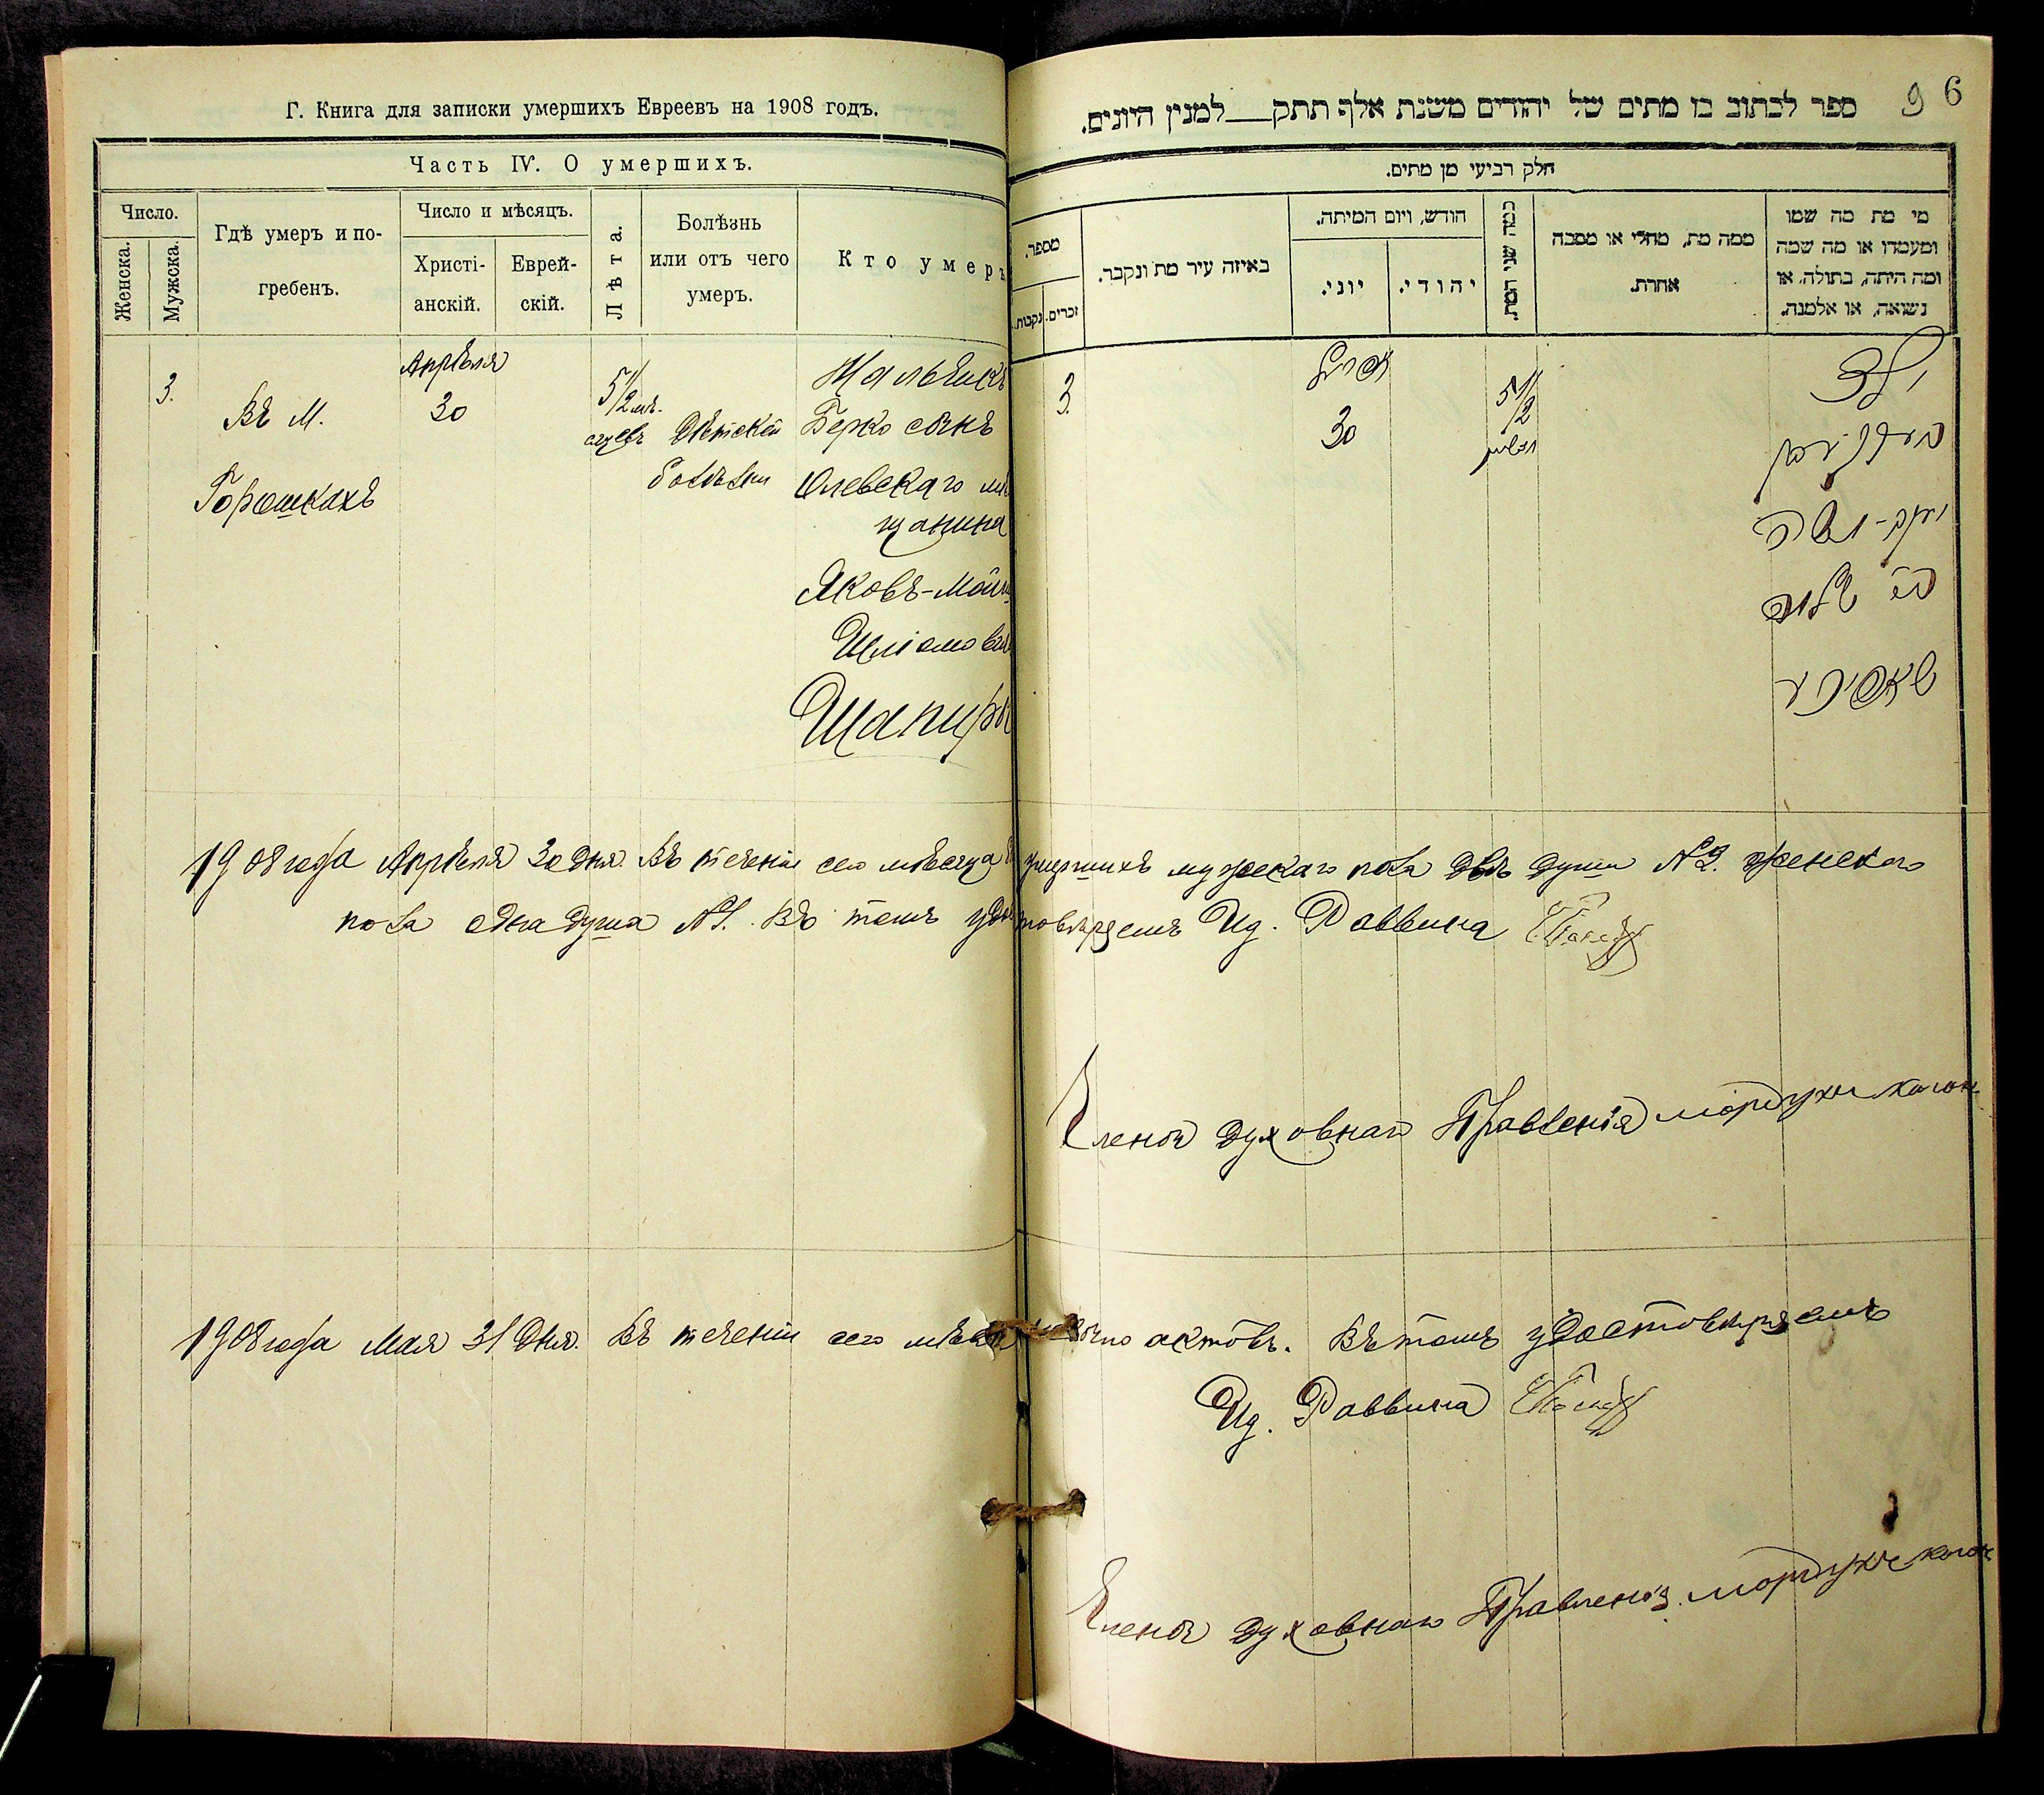 Г. Книга для записки умершихъ Евреевъ на 1908 годъ.
Часть IV. О умершихъ.
Число.
Женска.
Мужска.
Гдѣ умеръ и по-
гребенъ.
Число и мѣсяцъ.
Христі-
анскій.
Еврей-
скій.
Лѣта.
Болѣзнь
или отъ чего
умеръ.
Кто умеръ
3.
Въ М.
Горошкахъ
Апрѣля
30
5 1/2 мѣ-
сяцевъ
Дѣтской
болѣзни
Мальчикъ
Берко сынъ
Олевскаго мѣ
щанина
Яковъ-Мои
Шліомови
Шапиры
9 6
ספר לכתוב בו מתים של יהודים משנת אלף תתק___למנין היונים.
חלק רביעי מן מתים.
מספר.
זכרים.
נקבות.
באיזה עיר מת ונקבר.
חודש, ויום המיתה.
יוני.
יהודי.
כמה שני המת.
ממה מת, מחלי או מסבה
אחרת.
מי מת מה שמו
ומעמדו או מה שמה
ומה היתה, בתולה, או
נשואה, או אלמנה.
3.
אפריל
30
5 1/2
ילד
יעקב-משה
שאפירא
1908 года Апрѣля 30 дня. Въ теченіи сего мѣсяца умершихъ мужескаго пола двѣ души №3. женскаго
пола одна душа №1. Въ томъ удостовѣряемъ Ид. Раввина
Члены духовнаго Правленія Мордухъ Коган
1908 года Мая 31 дня. Въ теченіи сего мѣсяца актовъ. Въ томъ удостовѣряемъ
Ид. Раввина
Члены духовнаго Правленія. Мордухъ Коган